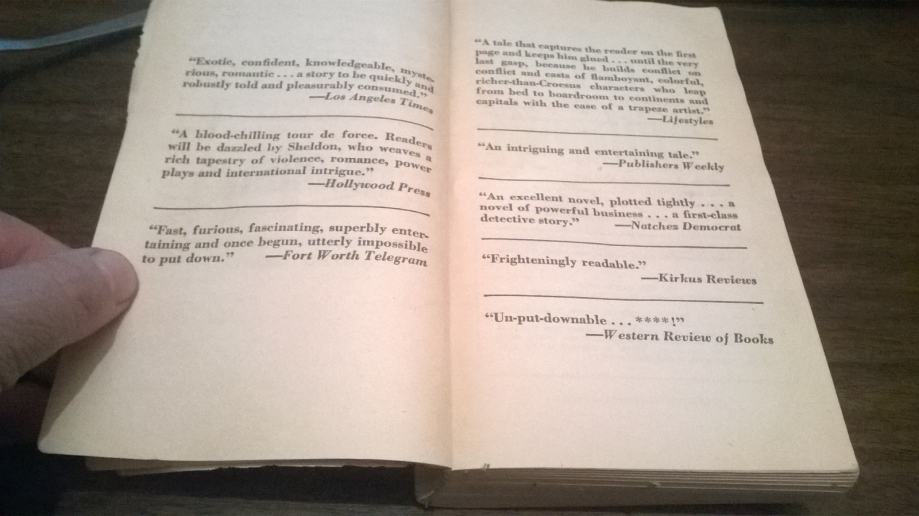 “Exotic, confident, knowledgeable, myste-
rious, romantic . . . a story to be quickly and
robustly told and pleasurably consumed.”
—Los Angeles Times
“A blood-chilling tour de force. Readers
will be dazzled by Sheldon, who weaves a
rich tapestry of violence, romance, power
plays and international intrigue.”
—Hollywood Press
“Fast, furious, fascinating, superbly enter-
taining and once begun, utterly impossible
to put down.” —Fort Worth Telegram
“A tale that captures the reader on the first
page and keeps him glued . . . until the very
last gasp, because he builds conflict on
conflict and casts of flamboyant, colorful,
richer-than-Croesus characters who leap
from bed to boardroom to continents and
capitals with the ease of a trapeze artist.”
—Lifestyles
“An intriguing and entertaining tale.”
—Publishers Weekly
“An excellent novel, plotted tightly . . . a
novel of powerful business . . . a first-class
detective story.” —Natchez Democrat
“Frighteningly readable.”
—Kirkus Reviews
“Un-put-downable . . . ****!”
—Western Review of Books